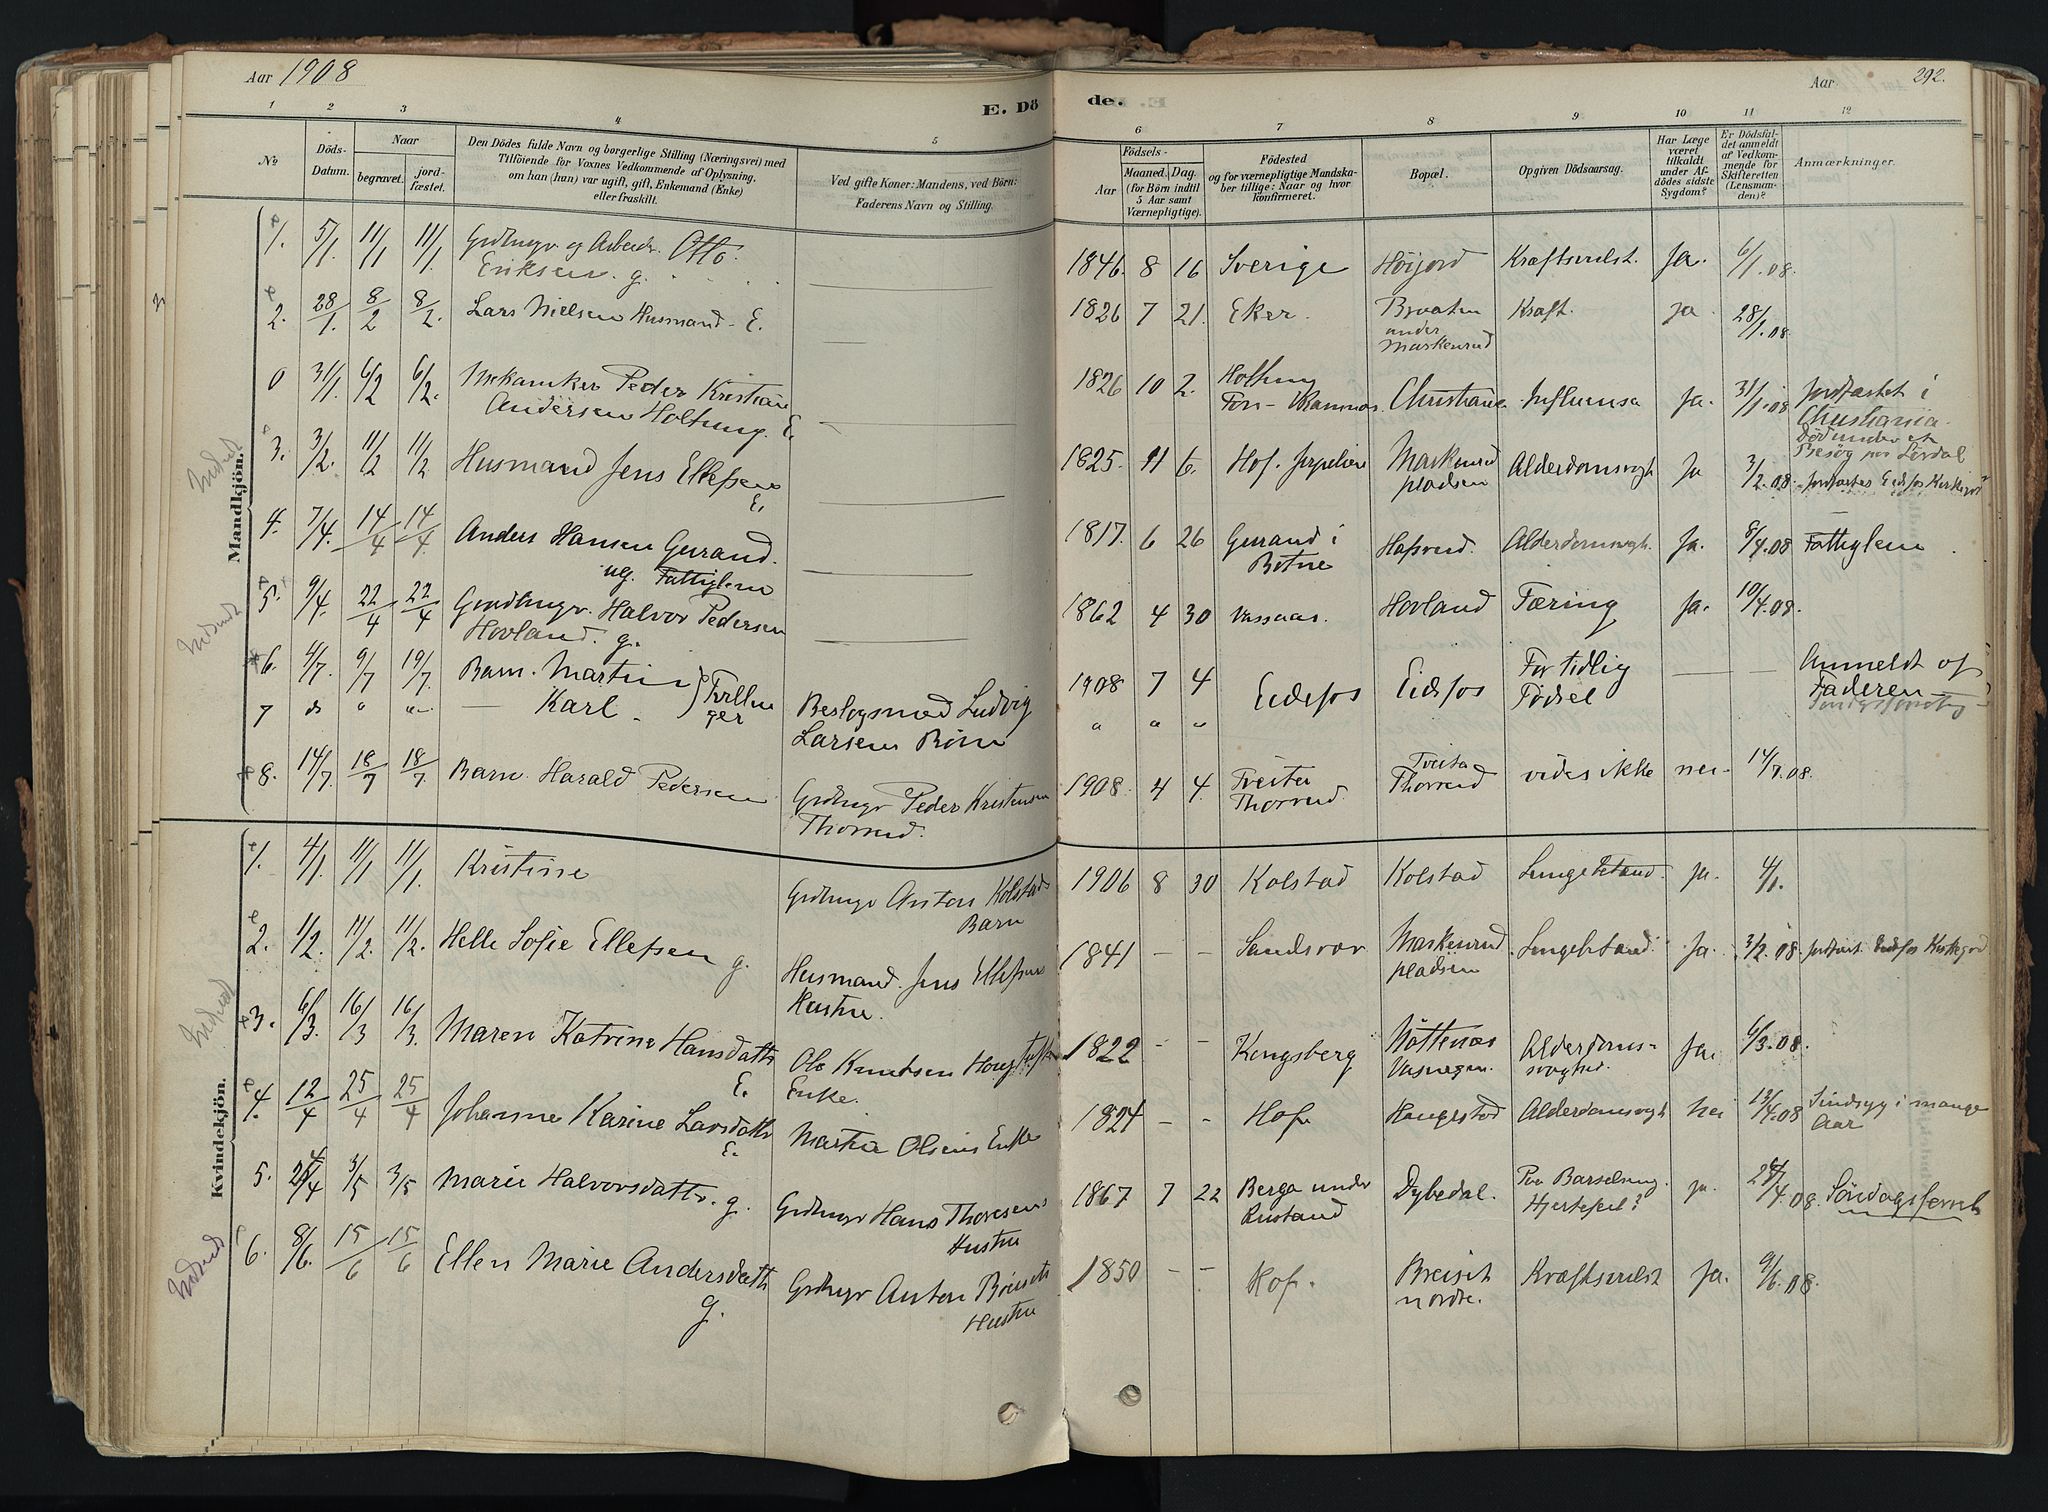 Aar 1908
E. Dö
de.
Aar
292.
1 2 3 4 5
6 7 8 9 10 11 12
No
Döds-
Datum.
Naar
begravet.
jord-
fæstet.
Den Dödes fulde Navn og borgerlige Stilling (Næringsvei) med
Tilföiende for Voxnes Vedkommende af Oplysning,
om han (hun) var ugift, gift, Enkemand (Enke)
eller fraskilt.
Ved gifte Koner: Mandens, ved Börn:
Faderens Navn og Stilling.
Födsels-
Aar
Maaned. Dag.
(for Börn indtil
5 Aar samt
Værnepligtige).
Födested
og for værnepligtige Mandska-
ber tillige: Naar og hvor
konfirmeret.
Bopæl.
Opgiven Dödsaarsag.
Har Læge
været
tilkaldt
under Af-
dödes sidste
Sygdom?
Er Dödsfal-
det anmeldt
af Vedkom-
mende for
Skifteretten
(Lensman-
den)?
Anmærkninger.
Mandkjön.
1. 5/1 11/1 11/1 Grdbrugr og Arbeidr. Otto
Eriksen. g.
1846. 8 16 Sverige Höijord Kræftsvulst. Ja. 6/1.08.
2. 28/1. 8/2 8/2. Lars Nielsen Husmand - E.
1826 7 21. Eker. Braaten
under
Maskerud
Kræft. ja. 28/1.08
0 31/1. 6/2 6/2. Mekaniker Peder Kristian
Andersen Holtung. E.
1826 10 2. Holtung
Christiania Influensa Ja. 31/1.08 jordfæstet i
Christiania.
Död under et
Besög
3. 3/2. 11/2 11/2 Husmand Jens Ellefsen
E.
1825. 11 6. Hof. Maskerud
pladsen
Alderdomsvagh Ja 3/2.08 jordfæstes Eidsfos Kirkegd
4. 7/4. 14/4 14/4 Anders Hansen Gurand.
ug. Fattiglem
1817. 6 26 Gurand i
Botne
Hafsrud. Alderdomsvagh. Ja. 8/4.08 Fattiglem
5. 9/4. 22/4 22/4 Grdbrugr. Halvor Pedersen
Hovland. g.
1862 4 30 Vassaas. Hovland Tæring Ja. 10/4.08.
6. 4/7. 9/7 19/7. Barn. Martin } Tvillin
7 do " " — Karl — ger
Beslagsmed Ludvig
Larsens Börn
1908 7 4 Eidsfos Eidsfos For tidlig
Födsel
— — Anmeldt af
Faderen
" " "
8. 14/7. 18/7 18/7 Barn. Harald Pedersen
Grdbrugr Peder Kristensen
Thorrud.
1908. 4 4. Tveiter
Thorrud.
Tveita
Thorrud
vides ikke nei - 14/7.08.
Kvindekjön.
1. 4/1. 11/1 11/1. Kristine
Grdbrugr Anton Kolstads
Barn
1906 8 30 Kolstad Kolstad Lungebetænd. ja. 4/1.
2. 1/2. 11/2. 11/2. Helle Sofie Ellefsen g.
Husmand. Jens Ellefsens
Hustru.
1841 - - Sandsvær Maskerud
pladsen
Lungebetænd. Ja. 3/2.08. jordfæst Eidsfos Kirkegd
3. 6/3. 16/3 16/3. Maren Katrine Hansdattr
E.
Ole Knutsen
Enke.
1822 - - Kongsberg Alderdoms-
svaghed.
Ja. 6/3.08.
4. 12/4 25/4 25/4 Johanne Karine Larsdattr
E.
Martin Olsens Enke
1824 - - Hof. Haugestad Alderdomsvagh nei 13/4.08 Sindsyg i mange
Aar
5. 24/4 3/5 3/5 Marie Halvorsdattr. g.
Grdbrugr Hans Thoresens
Hustru
1867 7 22 Berga under
Rustand
Dybedal. Paa Barselseng.
Hjertefeil?
ja. 28/4.08. Söndagsfornæ
6. 8/6. 15/6 15/6 Ellen Marie Andersdattr
g.
Grdbrugr Anton Breisets
Hustru
1850 - - Hof. Breiset
nordre.
Kræftsvulst Ja. 9/6.08.